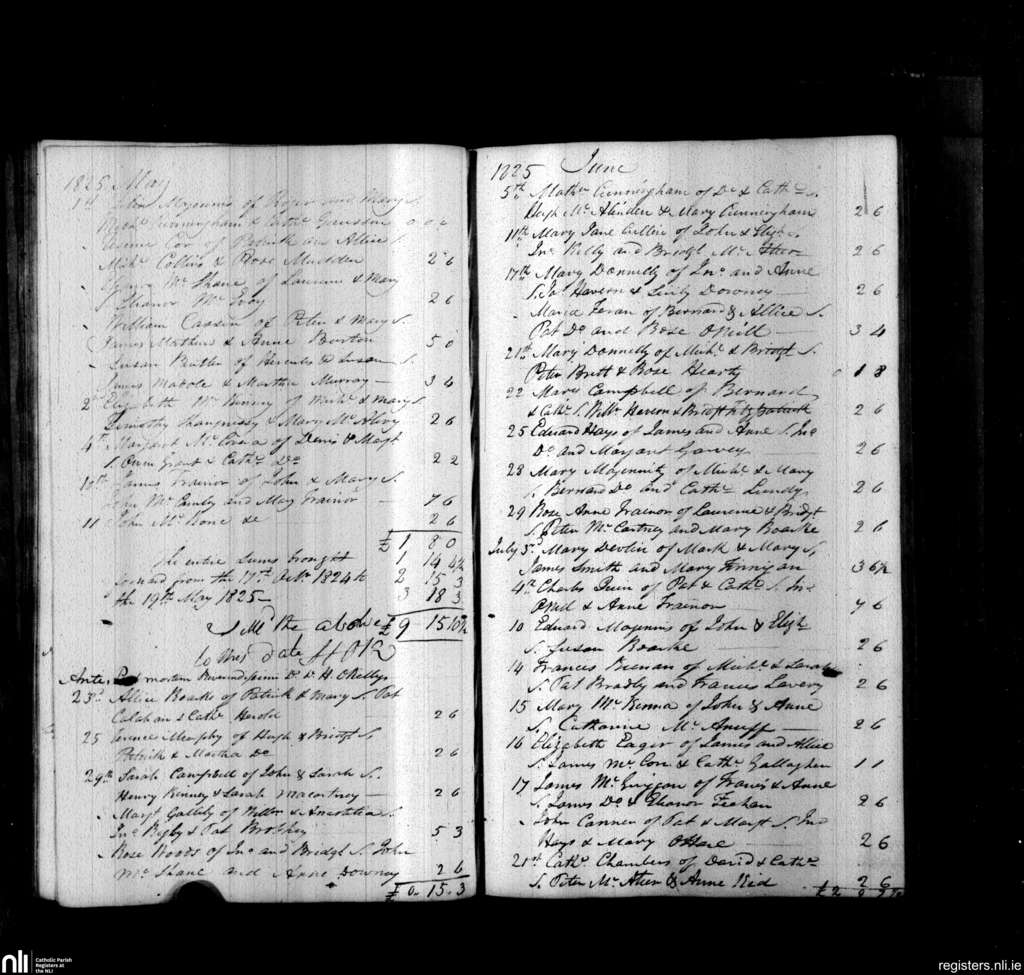 1825 May
1st Magennis of Roger and Mary S.
Cunningham & Cathe 0 0 0
Cox of Patrick and Allice S
Michl Collins & Rose Madden 2 6
Mc Shane of Laurence & Mary
S. Eleanor Mc Evoy 2 6
William Cassin of Peter & Mary S.
James Mathers & Anne Burton 5 0
Susan of Hercules & Susan S.
James & Martha Murray 3 4
2d Elizabeth Mc of Michl & Mary S
Timothy Shaugnessy & Mary Mc 2 6
4th Margaret Mc of Denis & Margt
S. Owen Grant & Cathe Do 2 2
10th James Trainor of John & Mary S.
John Mc and May Trainor 7 6
11 John Mc Kone &c 2 6
£ 1 8 0
The entire Sums brought 1 14 4½
forward from the 17th Octbr 1824 to 2 15 3
the 19th May 1825 3 18 3
the above £ 9 15 10½
to this date
Ante, mortem Reverendissimi D. D. H. OKellys
23d Allice Roarke of Patrick & Mary S. Pat
Calahan & Cathe 2 6
25 Terence Murphy of Hugh & Bridgt S
Patrick & Martha Do 2 6
29th Sarah Campbell of John & Sarah S.
Henry Kenney & Sarah Macartney 2 6
Margt of & Anastatia S.
Jno Rigby & Pat Brophy 5 3
Rose Woods of Jno and Bridgt S. John
Mc Shane and Anne Downey 2 6
£ 0. 15. 3
1825 June
5th Mathw Cunningham of Do & Cathe S.
Hugh Mc Alinden & Mary Cunningham 2 6
11th Mary Jane Cullin of John & Elizh S
Jno Kelly and Bridgt Mc 2 6
17th Mary Donnelly of Jno and Anne
S. Jas Havern & Downey 2 6
Maria Feran of Bernard & Allice S.
Pat Do and Rose ONeill 3 4
21st Mary Donnelly of Michl & Bridgt S.
Peter Britt & Rose Hearty 0 1 8
22 Mary Campbell of Bernard
& Cathe S. Willm & Bridgt Fitzpatrick 2 6
25 Edward Hays of James and Anne S. Jno
Do and Margaret Garvey 2 6
28 Mary Magennity of Michl & Mary
S. Bernard Do and Cathe Lundy 2 6
29 Rose Anne Trainor of Laurence & Bridgt
S. Peter Mc Cartney and Mary Roarke 2 6
July 3d Mary Devlin of Mark & Mary S,
James Smith and Mary Finnigan 3 6½
4th Charles Quin of Pat & Cathe S. Jno
ONeill & Anne Trainor 7 6
10 Edward Magennis of John & Elizh
S. Susan Roarke 2 6
14 Frances Beenan of Michl & Sarah
S. Pat Bradly and Frances Lavery 2 6
15 Mary Mc Kenna of John & Anne
S. Catharine Mc Anuff 2 6
16 Elizabeth Eager of James and Allice
S. James Mc Con & Cathe Gallagher 1 1
17 James Mc Guiggan of Francis & Anne
S. James Do & Eleanor Feahan 2 6
John Conner of Pat & Margt S. Jno
Hays & Mary OHare 2 6
21st Cathe Chambers of David & Cathe
S. Peter Mc Ateer & Anne Kid 2 6
nli Catholic Parish
Registers at
the NLI
registers.nli.ie